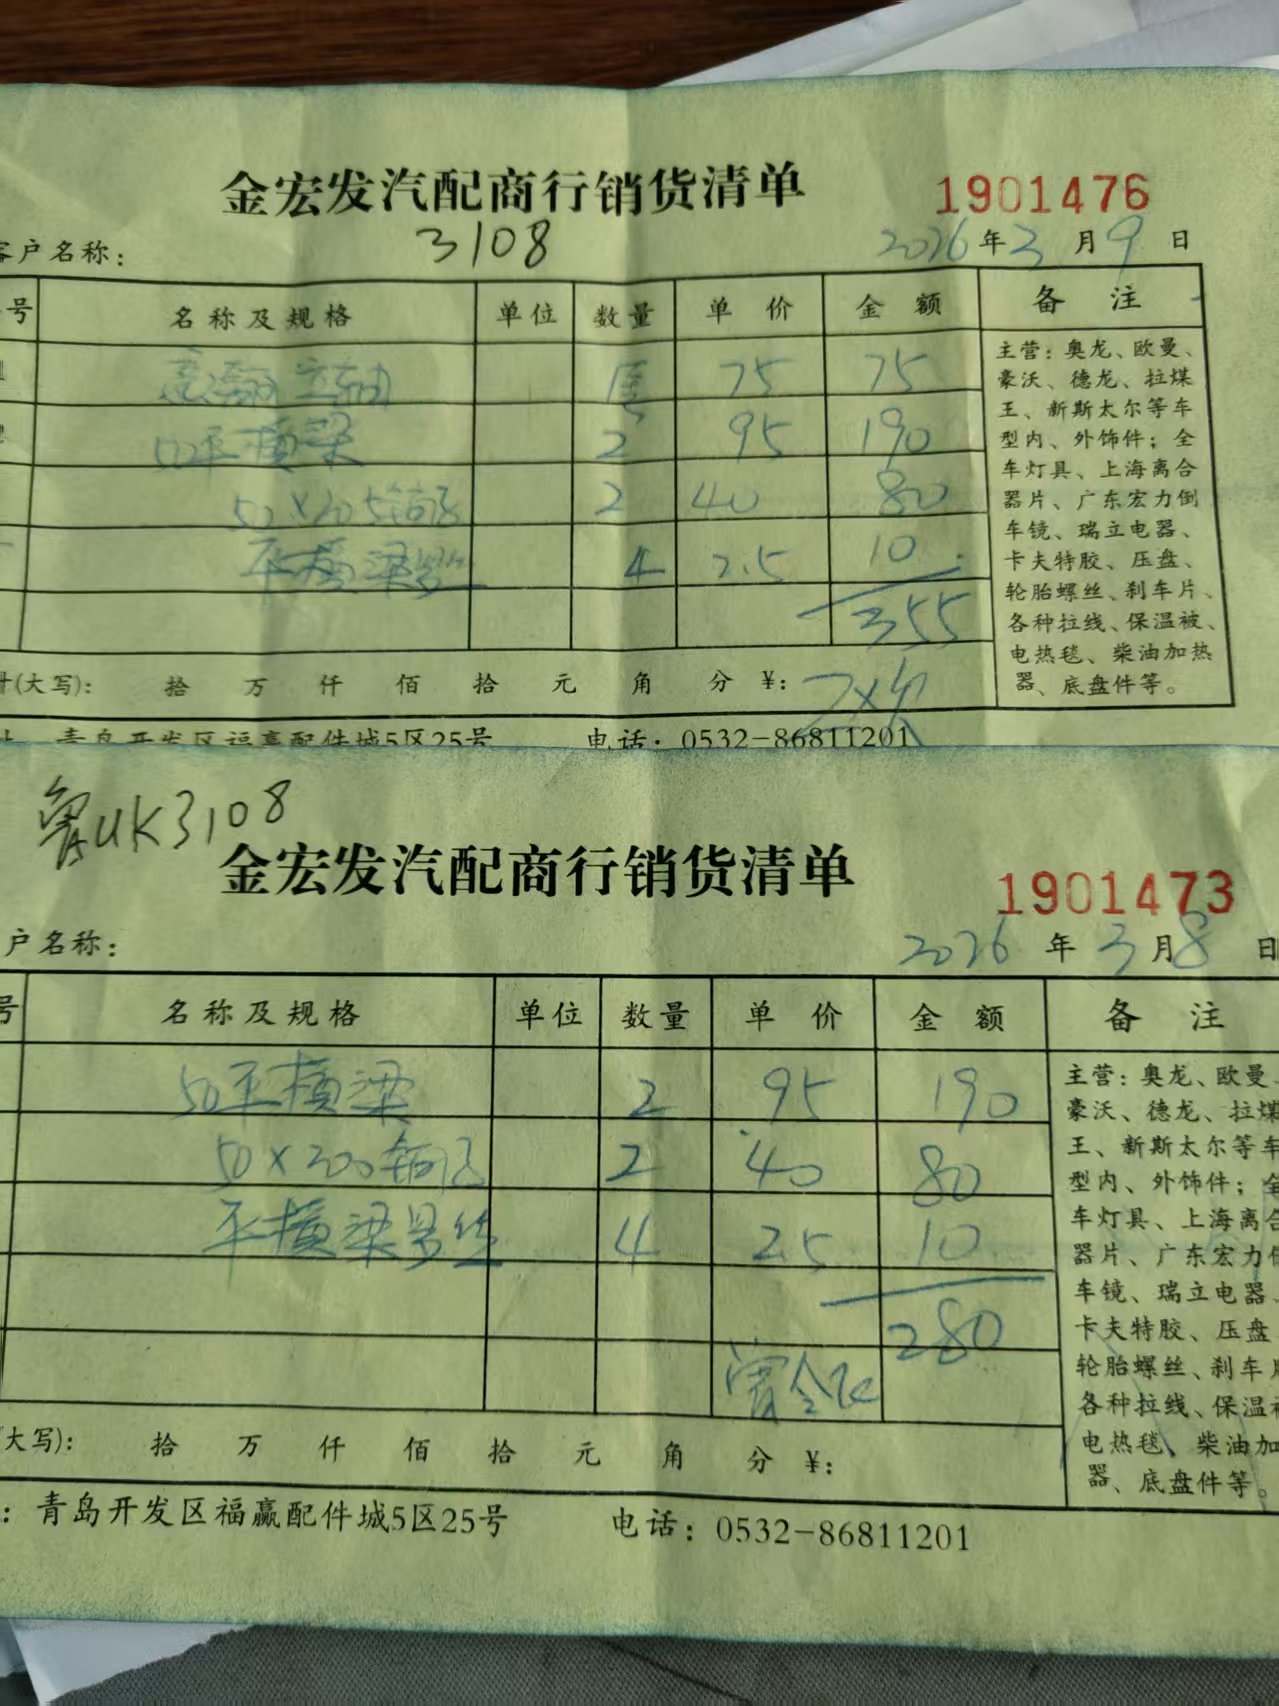 金宏发汽配商行销货清单 1901476
客户名称： 3108 2026年3月9日
号 名称及规格 单位 数量 单价 金额 备注
1 75 75
2 50平横梁 2 95 190
50×205铜 2 40 80
平横梁 4 2.5 10
355
主营：奥龙、欧曼、
豪沃、德龙、拉煤
王、新斯太尔等车
型内、外饰件；全
车灯具、上海离合
器片、广东宏力倒
车镜、瑞立电器、
卡夫特胶、压盘、
轮胎螺丝、刹车片、
各种拉线、保温被、
电热毯、柴油加热
器、底盘件等。
计(大写)： 拾 万 仟 佰 拾 元 角 分 ¥：
址 青岛开发区福赢配件城5区25号 电话：0532-86811201
鲁UK3108
金宏发汽配商行销货清单 1901473
户名称： 2026年3月8日
号 名称及规格 单位 数量 单价 金额 备注
50平横梁 2 95 190
50×200铜 2 40 80
平横梁 丝 4 2.5 10
280
主营：奥龙、欧曼、
豪沃、德龙、拉煤
王、新斯太尔等车
型内、外饰件；全
车灯具、上海离合
器片、广东宏力倒
车镜、瑞立电器、
卡夫特胶、压盘
轮胎螺丝、刹车片
各种拉线、保温被
电热毯、柴油加
器、底盘件等。
大写)： 拾 万 仟 佰 拾 元 角 分 ¥：
：青岛开发区福赢配件城5区25号 电话：0532-86811201